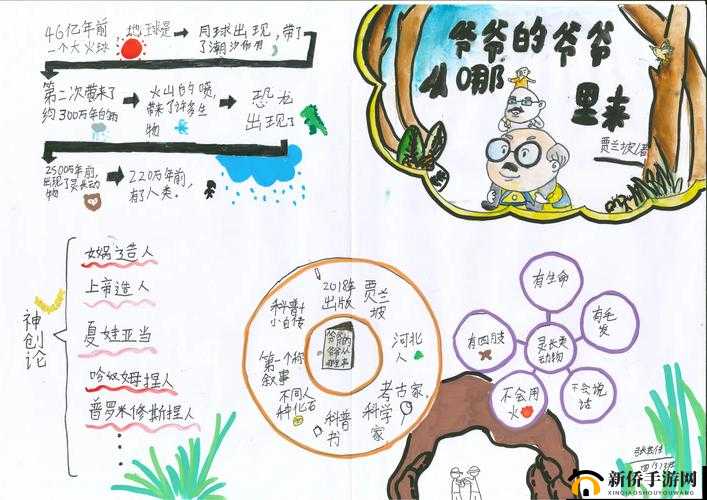 46亿年前 地球是
一个大火球
月球出现,带了
了潮汐作用
第二次带来了
约300万年的雨
火山的喷,
带来了许多生
物
恐龙
出现了
2500万年前,
出现了灵长动
物
220万年前,
有了人类。
爷爷的爷爷
从哪
里来
贾兰坡/著
神创论
女娲造人
上帝造人
夏娃亚当
哈奴姆捏人
普罗米修斯捏人
2018年
出版
贾兰
坡
河北
人
考古家,
科学
家
科普
书
不同人
种化石
第一个称
叙事
科普+
小自传
爷爷的
爷爷从
哪里来
有生命
有毛
发
不会说
话
不会用
火
有四肢
灵长类
动物
新侨手游网
XINQIAOSHOUYOUWANG